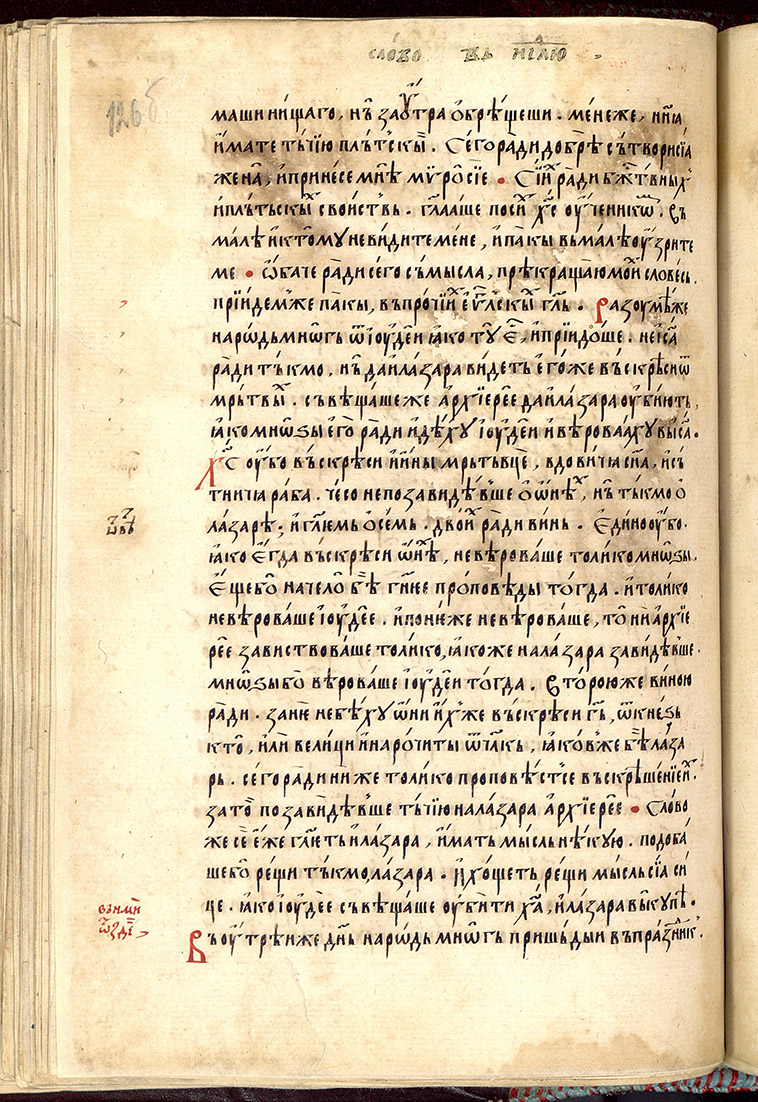 сло́во въ н҃лю
126б
маши ни́щаго, нѫ̀ заѹ́тра ѻ҆брѣ́щеши . ме́неже, нн҃ꙗ
и҆́мате тъ́чїю плъ́тскы . Сего̀ ра́ди добрѣ̀ сътвори сїа̀
жена̀, и҆ принесе мнѣ̀ мѵ́ро сїѐ • Сиⷯ ра́ди бж҃твныⷯ
и҆ плъ́тьскыⷯ сво́иствь . гл҃а́аше посиⷯ хс҃ ѹ҆ченикѡⷨ, въ
ма́лѣ и҆ ктомꙋ̀ не ви́дите ме́не, и҆ па́кы вьма́лѣ ѹ҆́зрите
ме • Ѻ҆́баче ра́ди сего̀ съмысла, прѣкраща́ю мой сло́весь.
прїи́демже па́кы, въпро́чїиⷯ еѵⷢ҇лскыⷯ гл҃ь . Разꙋмѣ́же
наро́дь мнѡ́гь ѿ і҆ѹде́и ꙗ҆́ко тꙋ̀ є҆ⷭ҇, и҆ прїидо́ше . не іс҃а
ра́ди тъ́кмо, нѫ̀ да и҆ ла́зара ви́деть е҆го́же въ́скрѣси ѿ
мрь́твыⷯ . съвѣща́шеже а҆рхїере́е да и҆ ла́зара ѹ҆бїють,
ꙗ҆́ко мнѡ́ѕы е҆го̀ ра́ди и҆дѣ́хꙋ і҆ѹде́и и҆ вѣ́роваахꙋ вь іс҃а.
Хс҃ ѹ҆́бо въ́скрѣси и҆ и҆́ны мрь́твьце, вдови́ча сн҃а, и҆ съ́
тнича ра́ба . чесо̀ не позави́дѣвше ѻ҆ ѡ҆нѣⷯ, нѫ̀ тъ́кмо ѻ҆
ла́зарѣ; и҆ гл҃емь ѻ҆ се́мь . двои́ⷯ ра́ди винь . Е҆ди́но ѹ҆́бо.
ꙗ҆́ко Е҆гда̀ въ́скрѣси ѡ҆́нѣⷯ, не вѣ́роваше толи́ко мнѡ́ѕы.
Е҆щебо̀ наче́ло бѣ̀ гн҃ее про́повѣды тогда̀ . и҆ толи́ко
не вѣ́роваше і҆ѹде́е . и҆ поне́же не вѣ́роваше, то̀ ни а҆рхїе
ре́е зави́ствоваше толи́ко, ꙗ҆́коже на ла́зара зави́дѣвше.
мнѡ́ѕы бо̀ вѣ́роваше і҆ѹде́и тогда̀ . Второ́юже вино́ю
ра́ди . зане́ не бѣ́хꙋ ѡ҆ни и҆́хже въ́скрѣси гь҃, ѿ кне́ѕь
кто̀, и҆лѝ вели́ци и҆ наро́читы ѿ чл҃кь, ꙗ҆́ковже бѣ̀ ла́за
рь . сего̀ ра́ди ни́же толи́ко проповѣ́стсе въскрѣше́нїе и҆ⷯ.
зато̀ позави́дѣвше тъ́чїю на ла́зара а҆рхїере́е • Сло́во
же сѐ е҆́же гл҃еть и҆ ла́зара, и҆́мать мы́сль нѣ́кую . подоба́
шебо̀ ре́щи тъ́кмо, ла́зара . и҆ хо́щеть ре́щи мы́сль сїа̀ си́
це . ꙗ҆́ко і҆ѹде́е съвѣща́ше ѹ҆бити ха҃, и҆ ла́зара вькꙋ́пѣ •
въ и҆́мⷩ҇и
ѿздⷧ҇ѣ
Въ ѹ҆́трѣиже дн҃ь наро́дь мнѡ́гь пришь́дыи въ пра́зⷣникⷩ҇.